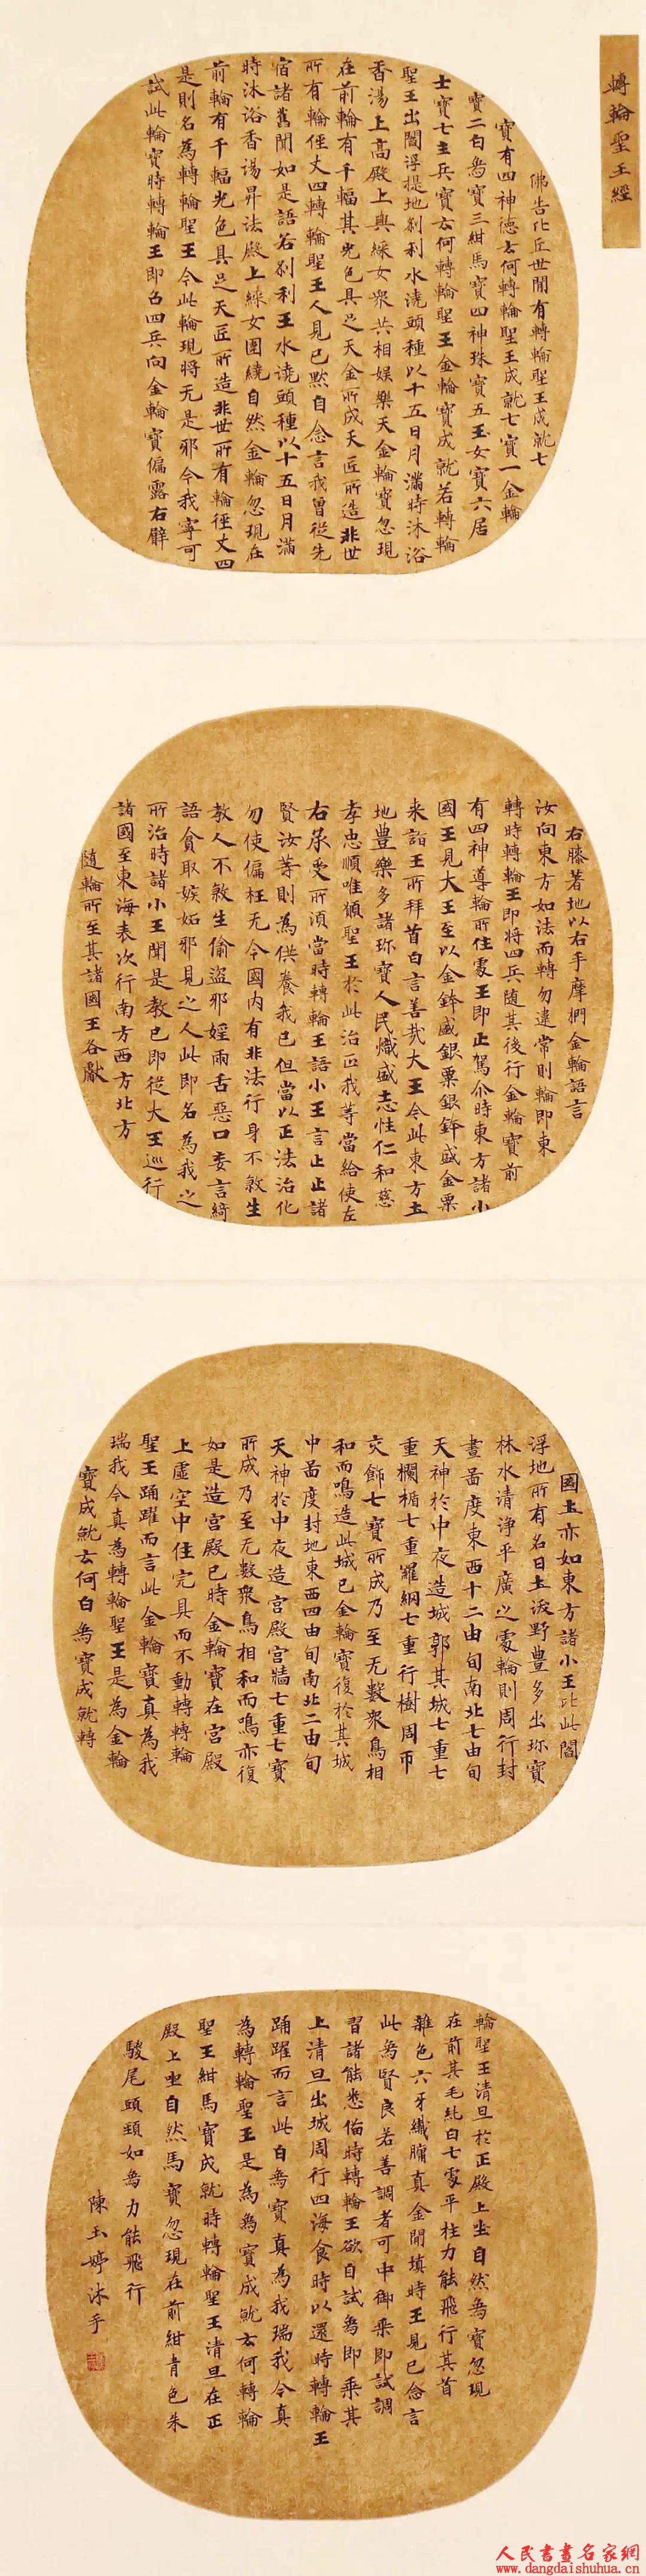 轉輪聖王經
佛告比丘世間有轉輪聖王成就七
寶有四神德云何轉輪聖王成就七寶一金輪
寶二白象寶三紺馬寶四神珠寶五玉女寶六居
士寶七主兵寶云何轉輪聖王金輪寶成就若轉輪
聖王出閻浮提地刹利水澆頭種以十五日月滿時沐浴
香湯上高殿上與婇女衆共相娛樂天金輪寶忽現
在前輪有千輻其光色具足天金所成天匠所造非世
所有輪徑丈四轉輪聖王人見已默自念言我曾從先
宿諸舊聞如是語若刹利王水澆頭種以十五日月滿
時沐浴香湯昇法殿上婇女圍繞自然金輪忽現在
前輪有千輻光色具足天匠所造非世所有輪徑丈四
是則名為轉輪聖王今此輪現將无是邪今我寧可
試此輪寶時轉輪王即召四兵向金輪寶偏露右臂
右膝著地以右手摩捫金輪語言
汝向東方如法而轉勿違常則輪即東
轉時轉輪王即將四兵随其後行金輪寶前
有四神導輪所住處王即止駕尒時東方諸小
國王見大王至以金鉢盛銀粟銀鉢盛金粟
来詣王所拜首白言善哉大王今此東方土
地豊樂多諸珎寶人民熾盛志性仁和慈
孝忠順唯願聖王於此治正我等當給使左
右承受所須當時轉輪王語小王言止止諸
賢汝等則為供養我已但當以正法治化
勿使偏枉无令國内有非法行身不煞生
教人不煞生偷盜邪婬兩舌惡口妄言綺
語貪取嫉妬邪見之人此即名為我之
所治時諸小王聞是教已即從大王巡行
諸國至東海表次行南方西方北方
隨輪所至其諸國王各獻
國土亦如東方諸小王比此閻
浮地所有名曰土沃野豊多出珎寶
林水清淨平廣之處輪則周行封
畫啚度東西十二由旬南北七由旬
天神於中夜造城郭其城七重七
重欄楯七重羅網七重行樹周帀
交飾七寶所成乃至无數衆鳥相
和而鳴造此城已金輪寶復於其城
中啚度封地東西四由旬南北二由旬
天神於中夜造宮殿宮牆七重七寶
所成乃至无數衆鳥相和而鳴亦復
如是造宮殿已時金輪寶在宮殿
上虛空中住完具而不動轉轉輪
聖王踊躍而言此金輪寶真為我
瑞我今真為轉輪聖王是為金輪
寶成就云何白象寶成就轉
輪聖王清旦於正殿上坐自然象寶忽現
在前其毛純白七處平柱力能飛行其首
雜色六牙纖𦟛真金間填時王見已念言
此象賢良若善調者可中御乘即試調
習諸能悉俻時轉輪王欲自試象即乘其
上清旦出城周行四海食時以還時轉輪王
踊躍而言此白象寶真為我瑞我今真
為轉輪聖王是為象寶成就云何轉輪
聖王紺馬寶成就時轉輪聖王清旦在正
殿上坐自然馬寶忽現在前紺青色朱
騣尾頭頸如象力能飛行
陳玉婷沐手
人民書畫名家網
www.dangdaishuhua.cn